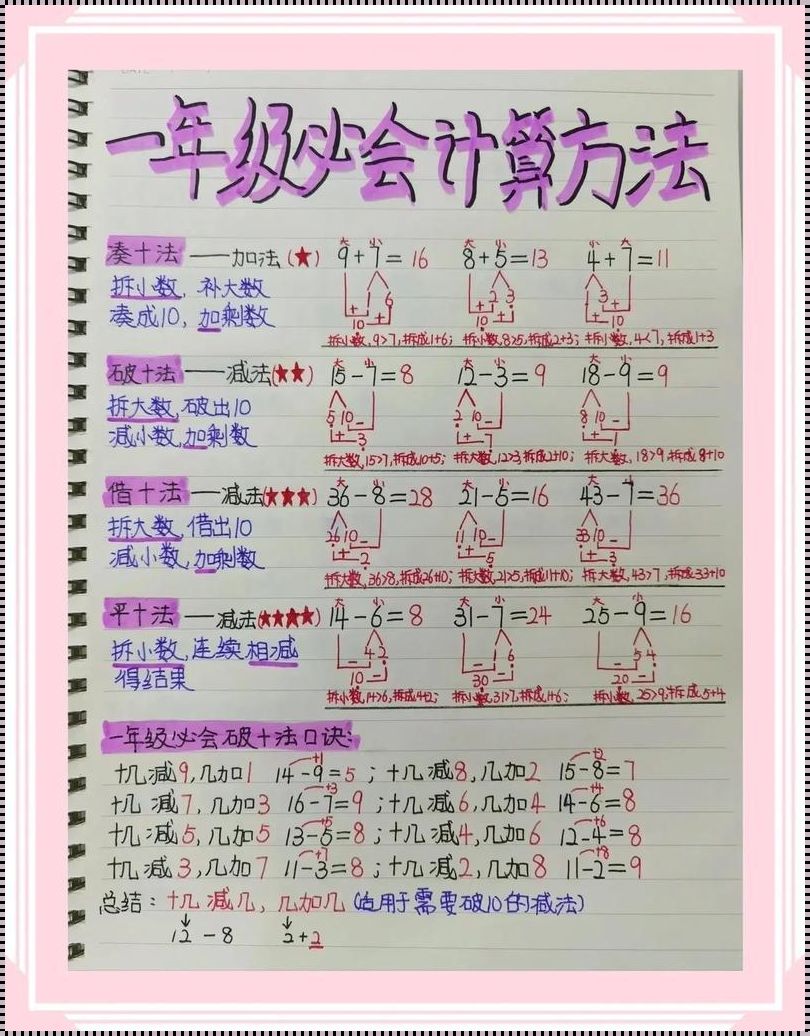 一年级必会计算方法
凑十法——加法(★) 9+7=16 8+5=13 4+7=11
拆小数, 补大数
凑成10, 加剩数
拆小数,9>7,拆成1+6; 拆小数,8>5,拆成2+3; 拆小数,4<7,拆成1+3
破十法——减法(★★) 15-7=8 12-3=9 18-9=9
拆大数,破出10
减小数,加剩数
拆大数,15>7,拆成10+5; 拆大数,12>3,拆成2+10; 拆大数,18>9,拆成8+10
借十法——减法(★★★) 36-8=28 21-5=16 43-7=36
拆大数,借出10
减小数,加剩数
拆大数,36>8,拆成26+10; 拆大数,21>5,拆成11+10; 拆大数,43>7,拆成33+10
平十法——减法(★★★★) 14-6=8 31-7=24 25-9=16
拆小数,连续相减
得结果
拆小数,14>6,拆成4+2; 拆小数,31>7,拆成1+6; 拆小数,25>9,拆成5+4
一年级必会破十法口诀:
十几减9,几加1 14-9=5;十几减8,几加2 15-8=7
十几减7,几加3 16-7=9;十几减6,几加4 14-6=8
十几减5,几加5 13-5=8;十几减4,几加6 12-4=8
十几减3,几加7 11-3=8;十几减2,几加8 11-2=9
总结:十几减几,几加几(适用于需要破10的减法)
12-8 2+2